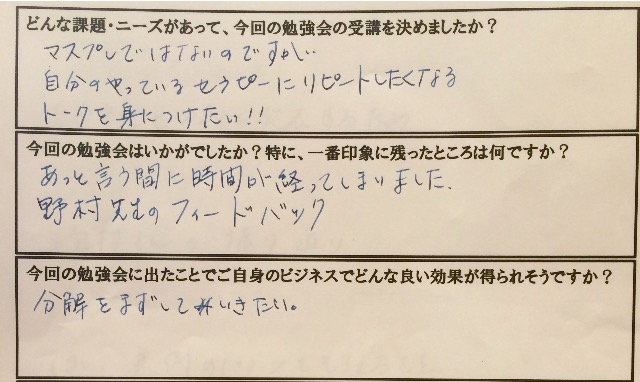 どんな課題・ニーズがあって、今回の勉強会の受講を決めましたか？
マスプレではないのですが…
自分のやっているセラピーにリピートしたくなる
トークを身につけたい！！
今回の勉強会はいかがでしたか？特に、一番印象に残ったところは何ですか？
あっと言う間に時間が経ってしまいました、
野村先生のフィードバック
今回の勉強会に出たことでご自身のビジネスでどんな良い効果が得られそうですか？
分解をまずして いきたい。